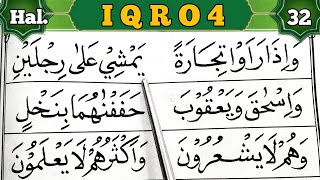 Hal. IQRO 4 32
وَاِذَا رَاَوْا تِجَارَةً يَمْشِيْ عَلٰى رِجْلَيْنِ
وَاِسْحٰقَ وَيَعْقُوْبَ حَفَفْنٰهُمَا بِنَخْلٍ
وَهُمْ لَا يَشْعُرُوْنَ وَاَكْثَرُهُمْ لَا يَعْلَمُوْنَ